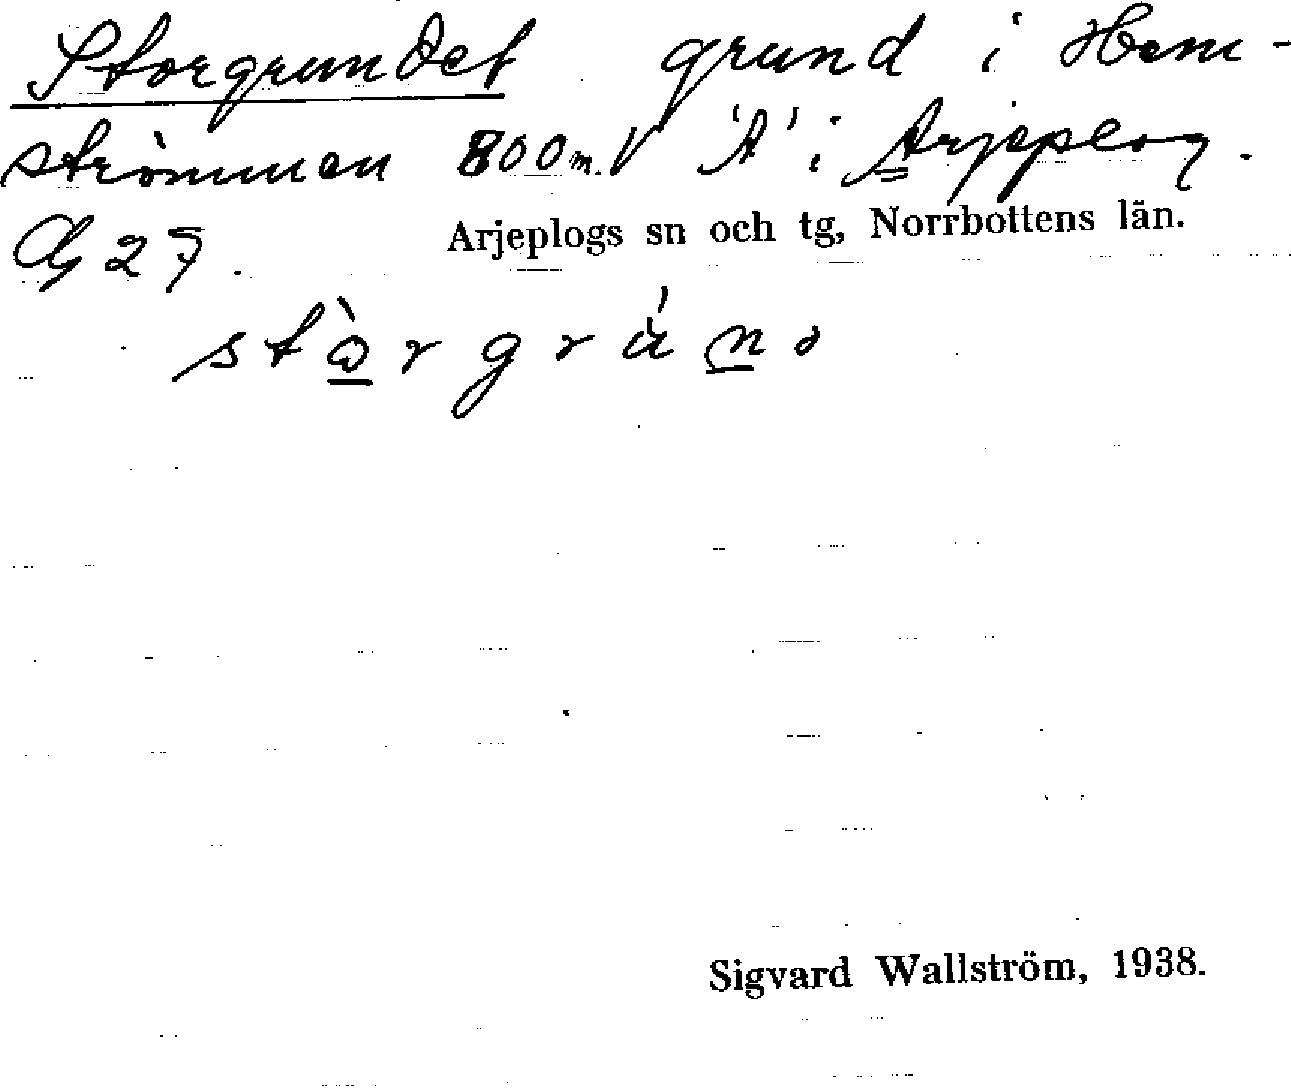 Storgrundet grund i Hem-
strömmen 800 m. V 'A' i Arjeplog.
Cg 27.
Arjeplogs sn och tg, Norrbottens län.
Sigvard Wallström, 1938.